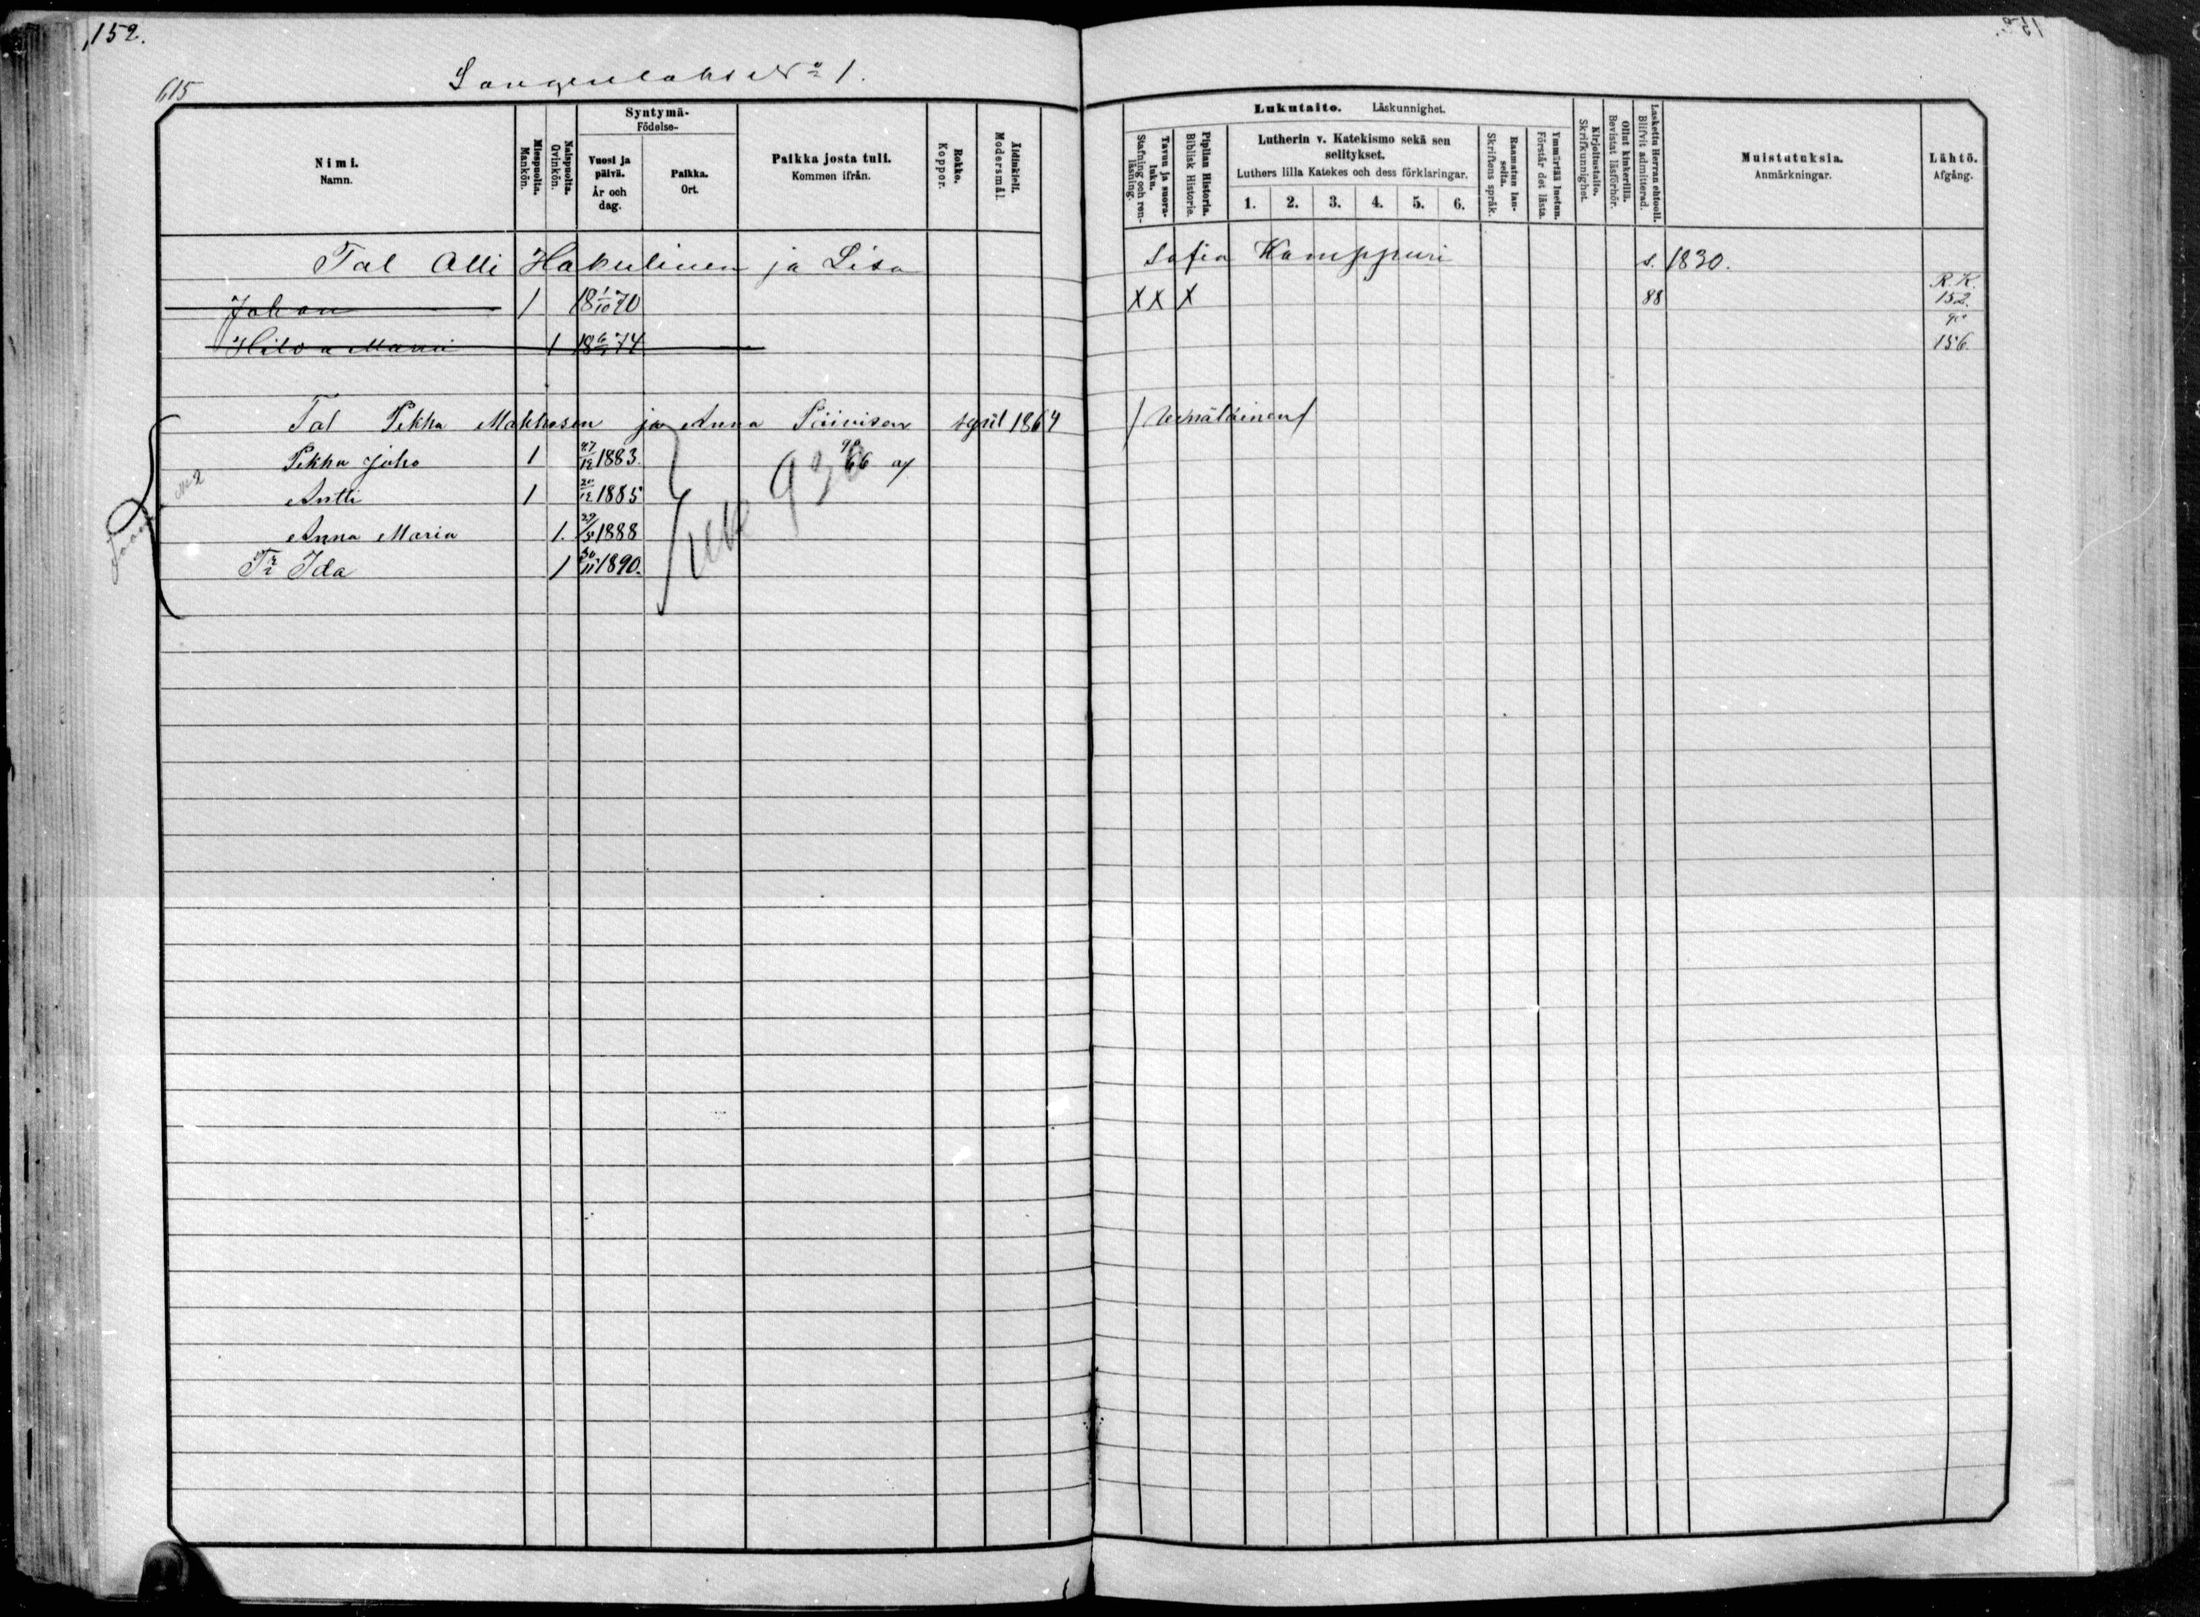 152.
615
No 1.
Nimi.
Namn.
Miespuolta.
Mankön.
Naispuolta.
Qvinkön.
Syntymä-
Födelse-
Vuosi ja päivä.
År och dag.
Paikka.
Ort.
Paikka josta tuli.
Kommen ifrån.
Rokko.
Koppor.
Äidinkieli.
Modersmål.
Lukutaito. Läskunnighet.
Tavuu ja suoraluku.
Stafning och renläsning.
Piplian Historia.
Biblisk Historie.
Lutherin v. Katekismo sekä sen selitykset.
Luthers lilla Katekes och dess förklaringar.
1. 2. 3. 4. 5. 6.
Raamatun lauseita.
Skriftens språk.
Ymmärtää luetun.
Förstår det lästa.
Kirjoitustaito.
Skrifkunnighet.
Ollut kinkerillä.
Bevistat läsförhör.
Laskettu Herran ehtooll.
Blifvit admitterad.
Muistutuksia.
Anmärkningar.
Lähtö.
Afgång.
Tal Olli Hakulinen ja Lisa Sofia Kamppuri s. 1830.
Johan 1 18 1/10 70 X X X 88 R.K. 152.
Maria 1 18 74 156.
Tal Pekka Makkosen ja Anna Siinisen 1864
Pekka Juho 1 27/12 1883. 66
Antti 1 20/12 1885
Anna Maria 1. 1888
Tr Ida 1 30/11 1890.